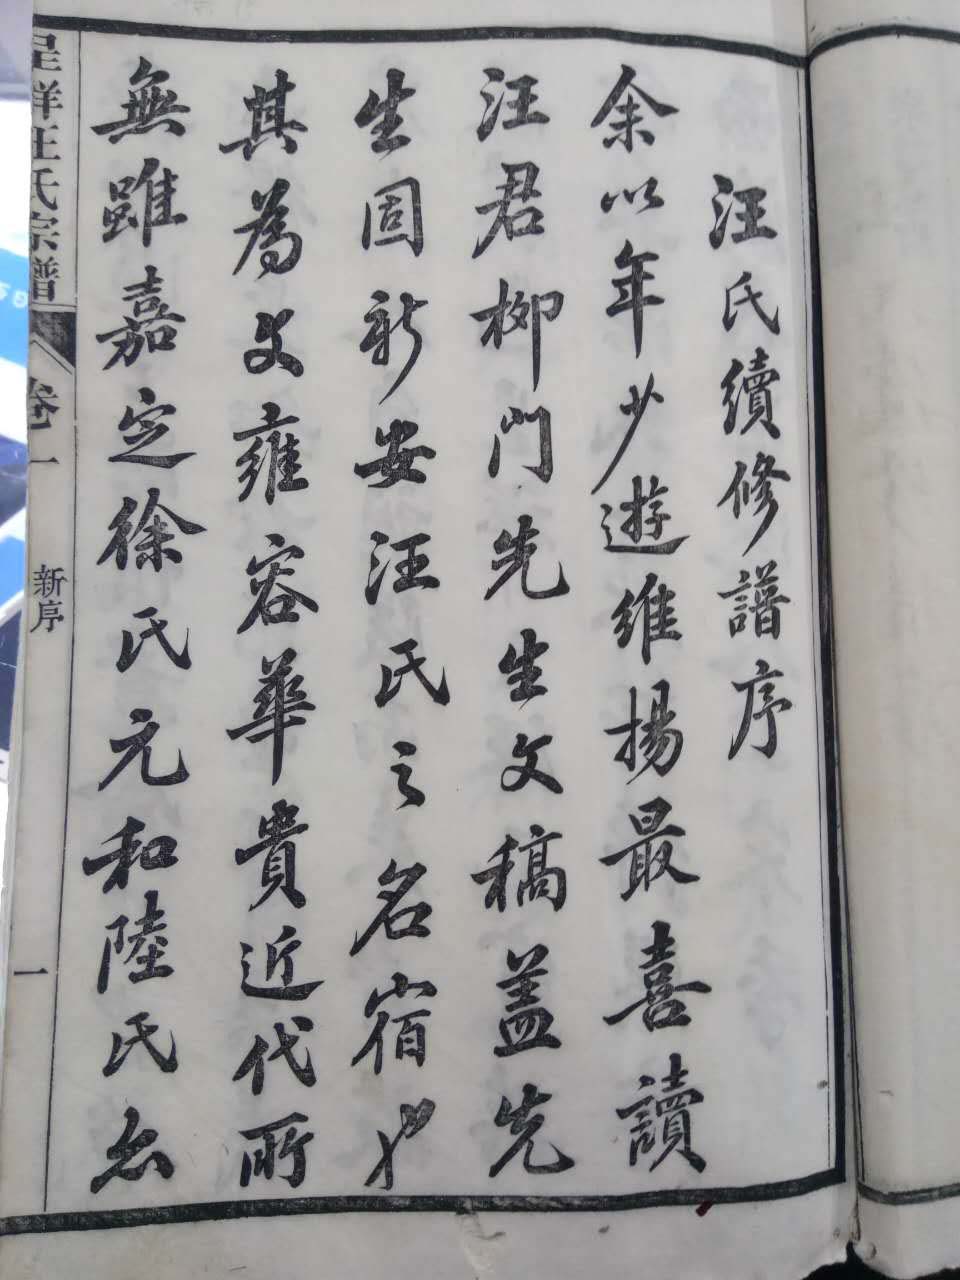 汪氏續修譜序
余以年少遊維揚最喜讀
汪君柳門先生文稿蓋先
生固新安汪氏之名宿也
其為文雍容華貴近代所
無雖嘉定徐氏元和陸氏
汪氏宗譜
卷一
新序
一